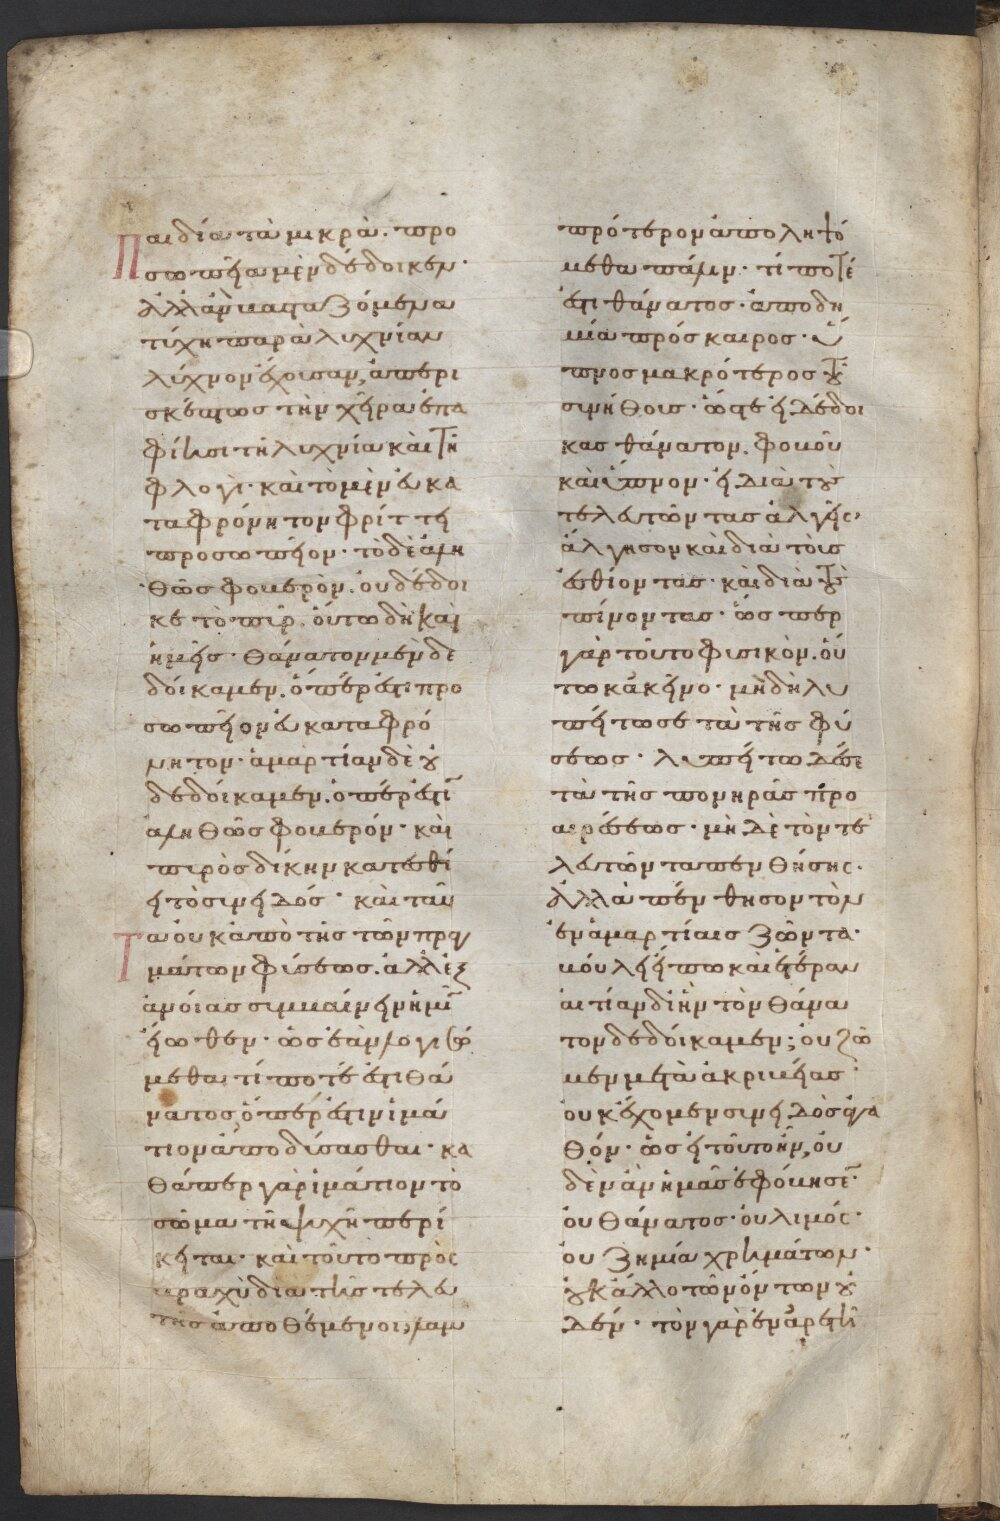 Παιδία τὰ μικρὰ. προ
σωπεῖα μὲν δέδοικεν·
ἀλλὰν καταζόμενα
τύχη παρὰ λυχνίαν
λύχνον ἔχουσαν, ἀπερι
σκέπτως τὴν χεῖρα ἐπα
φίησι τῆ λυχνία καὶ τῆ
φλογὶ· καὶ τὸ μὲν εὐκα
ταφρόνητον φρίττει
προσωπεῖον· τὸ δὲ ἀλη
θῶς φοβερὸν. οὐ δέδοι
κε τὸ πῦρ. οὕτω δὴ καὶ
ἡμεῖς· θάνατον μὲν δε
δοίκαμεν. ὅπερ ἐστὶ προ
σωπεῖον εὐκαταφρό
νητον· ἁμαρτίαν δὲ οὐ
δεδοίκαμεν. ὅπερ ἐστὶ
ἀληθῶς φοβερόν· καὶ
πυρὸς δίκην κατεσθί
ει τὸ συνειδός· καὶ ταῦ
τα οὐκ ἀπὸ τῆς τῶν πραγ
μάτων φύσεως. ἀλλ' ἐξ
ἀνοίας συμβαίνειν ἡμῖν
εἴωθεν· ὡς ἐὰν λογισώ
μεθα τί ποτέ ἐστι θά
νατος, ὅπερ ἐστὶν ἱμά
τιον ἀποδύσασθαι· κα
θάπερ γὰρ ἱμάτιον τὸ
σῶμα τῆ ψυχῆ περί
κειται· καὶ τοῦτο πρὸς
βραχὺ διὰ τῆς τελευ
τῆς ἀποθέμενοι, λαμ
πρότερον ἀποληψό
μεθα πάλιν· τί ποτέ
ἐστι θάνατος· ἀποδη
μία πρόσκαιρος· ὕ
πνος μακρότερος τοῦ
συνήθους· ὥστε εἰ δέδοι
κας θάνατον. φοβοῦ
καὶ ὕπνον· εἰ διὰ τοὺς
τελευτῶντας ἀλγεῖς,
ἄλγησον καὶ διὰ τοὺς
ἐσθίοντας· καὶ διὰ τοὺς
πίνοντας· ὥσπερ
γὰρ τοῦτο φυσικὸν. οὕ
τω κἀκεῖνο· μὴ δὴ λυ
πείτω σε τὰ τῆς φύ
σεως· λυπείτω δέ σε
τὰ τῆς πονηρᾶς προ
αιρέσεως· μὴ δὲ τὸν τε
λευτῶντα πενθήσης·
ἀλλὰ πένθησον τὸν
ἐν ἁμαρτίαις ζῶντα·
βούλει εἴπω καὶ ἑτέραν
αἰτίαν δι' ἣν τὸν θάνα
τον δεδοίκαμεν; οὐ ζῶ
μεν μετὰ ἀκριβείας·
οὐκ ἔχομεν συνειδὸς ἀγα
θόν· ὡς εἰ τοῦτο ἦν, οὐ
δὲν ἂν ἡμᾶς ἐφόβησε·
οὐ θάνατος· οὐ λιμός·
οὐ ζημία χρημάτων·
οὐκ ἄλλο τῶν ὄντων οὐ
δέν· τὸν γὰρ ἐν ἀρετῆ